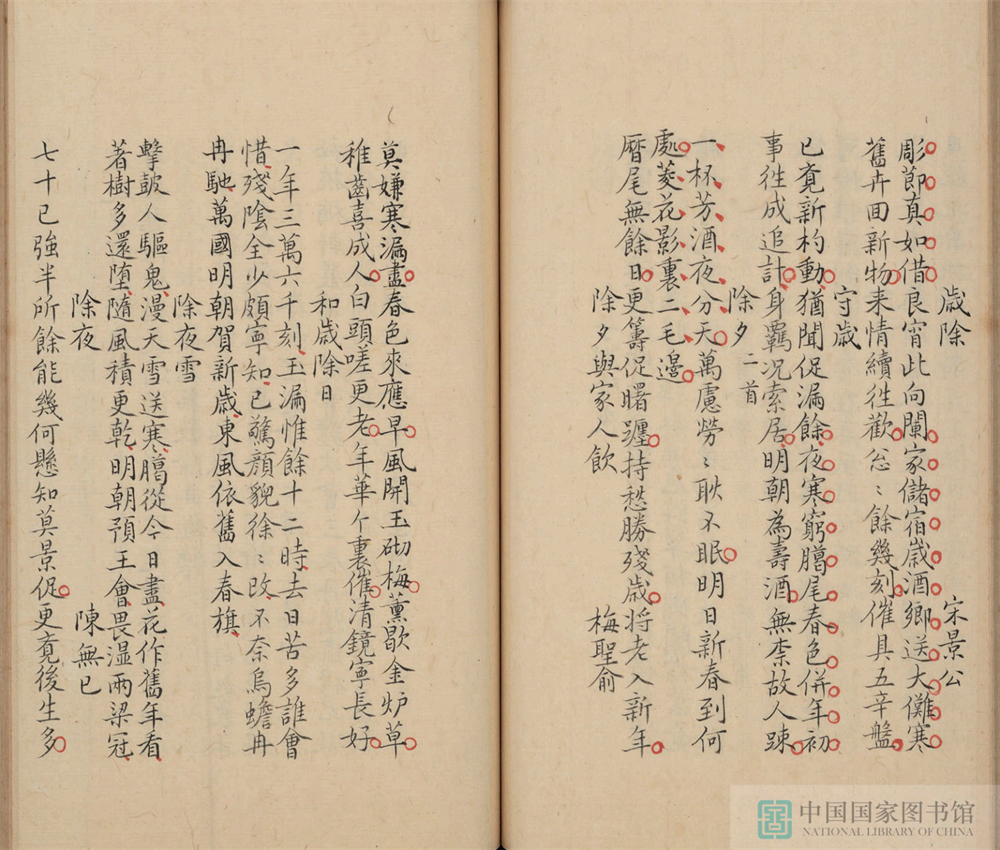 歲除 宋景公
彫莭真如借良宵此向闌家儲宿歲酒鄉送大儺寒
舊卉回新物来情續徃歡忩〻餘幾刻催具五辛盤
守歲
已竟新杓動猶聞促漏餘夜寒窮臈尾春色併年初
事徃成追計身覊况索居明朝為壽酒無柰故人踈
除夕二首
一杯芳酒夜分天萬慮勞〻耿不眠明日新春到何
處菱花影裏二毛邊
曆尾無餘日更籌促曙躔持愁勝殘歲将老入新年
除夕與家人飲 梅聖俞
莫嫌寒漏盡春色來應早風開玉砌梅薰歇金炉草
稚齒喜成人白頭嗟更老年華个裏催清鏡寧長好
和歲除日
一年三萬六千刻玉漏惟餘十二時去日苦多誰會
惜殘陰全少頗寧知已驚顏貌徐〻改不奈烏蟾冉
冉馳萬國明朝賀新歲東風依舊入春旗
除夜雪
擊鼓人驅鬼漫天雪送寒臈從今日盡花作舊年看
著樹多還堕隨風積更乾明朝預王會畏溼兩梁冠
除夜 陳無已
七十已強半所餘能幾何懸知莫景促更竟後生多
中国国家图书馆
NATIONAL LIBRARY OF CHINA